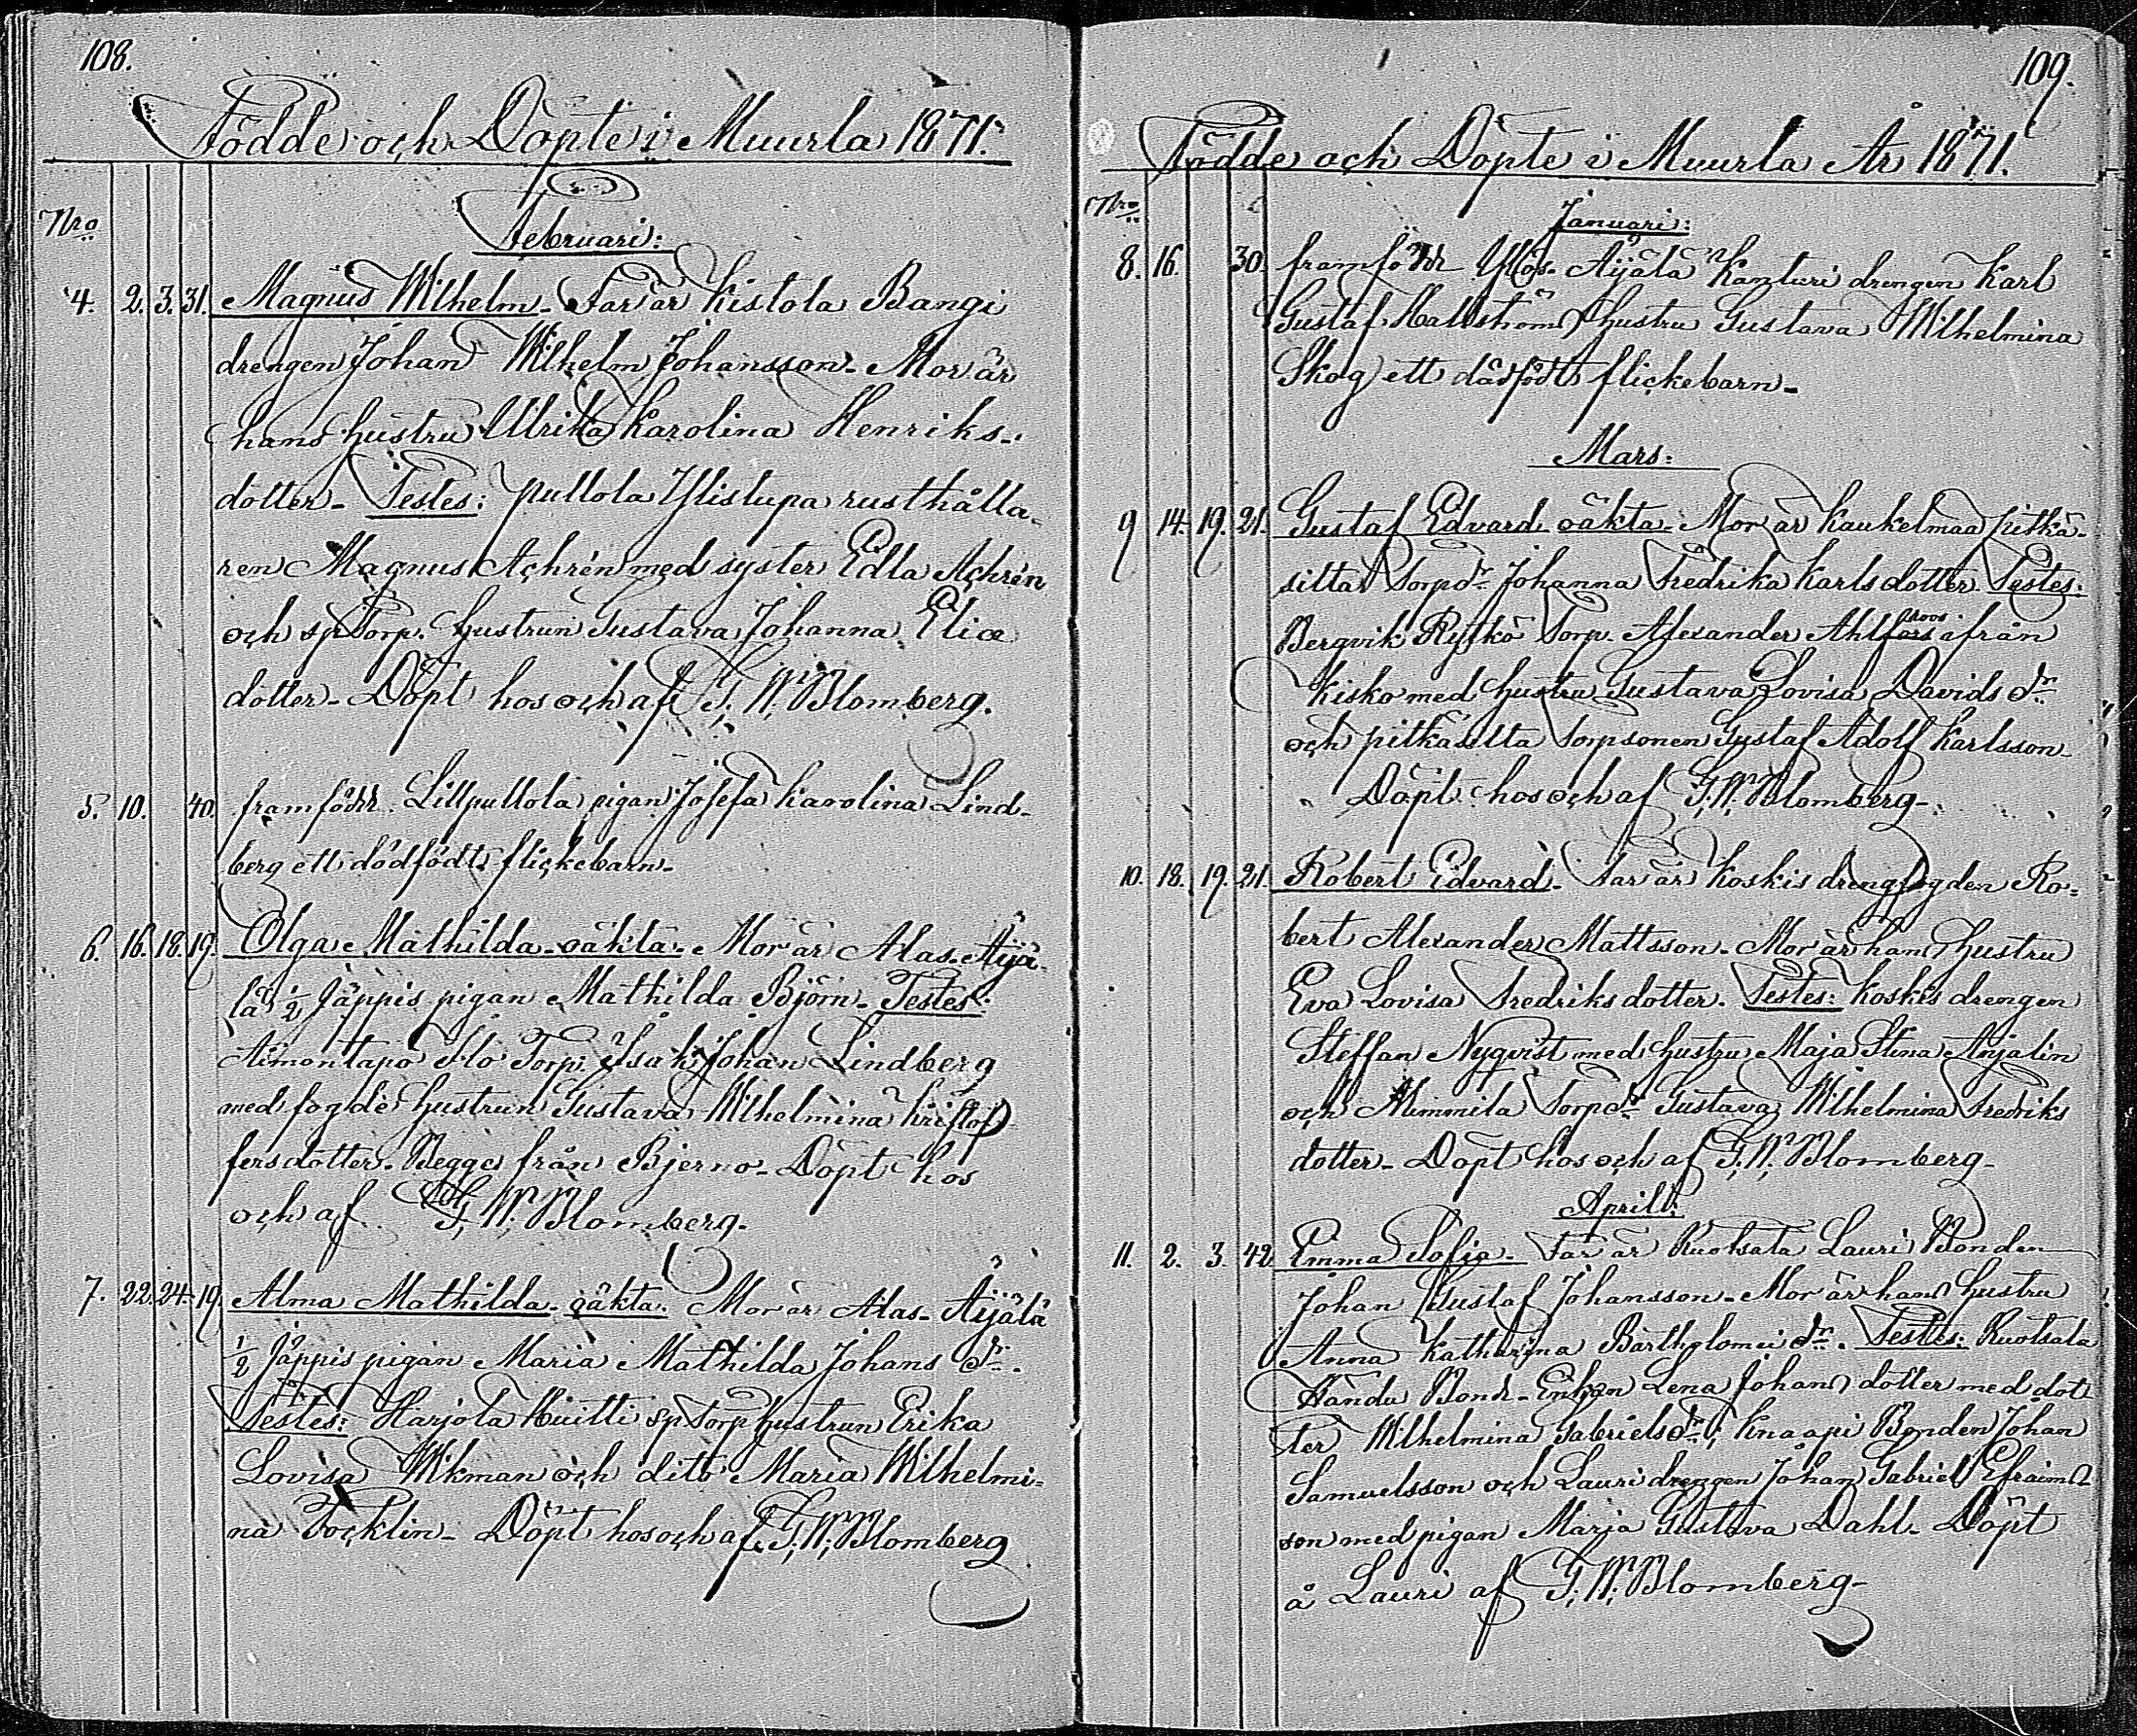 108.
Födde och Döpte i Muurla 1871.
Nro
Februari:
4. 2. 3. 31. Magnus Wilhelm. Far är Kistola Bangi
drengen Johan Wilhelm Johansson. Mor är
hans hustru Ulrika Karolina Henriks-
dotter. Testes: Pullola Ylistupa rusthålla-
ren Magnus Achrén med syster Edla Achrén
och sp Torp. hustrun Gustava Johanna Eliæ
dotter. Döpt hos och af G. W. Blomberg.
5. 10. 40. framfödt Lillpullola pigan Josefa Karolina Lind-
berg ett dödfödt flickebarn.
6. 16. 18. 19. Olga Mathilda. oäkta. Mor är Alas-Äijä-
lä 1/2 Jäppis pigan Mathilda Björn. Testes:
Aimontapo Torp. Isak Johan Lindberg
med fogde hustrun Gustava Wilhelmina Kristof-
fersdotter. Begge från Bjerno. Döpt hos
och af G. W. Blomberg.
7. 22. 24. 19. Alma Mathilda. oäkta. Mor är Alas-Äijälä
1/2 Jäppis pigan Maria Mathilda Johans dr.
Testes: Härjola Huitti sp Torp hustrun Erika
Lovisa Wikman och dito Maria Wilhelmi-
na Tocklin. Döpt hos och af G. W. Blomberg
109.
Födde och Döpte i Muurla År 1871.
Nro
Januari:
8. 16. 30. framfödt Äijälä Kanturi drengen Karl
Gustaf Hallström hustru Gustava Wilhelmina
Skog ett dödfödt flickebarn.
Mars:
9 14. 19. 21. Gustaf Edvard oäkta. Mor är Kaukelmaa pitkä-
silta Torpdr Johanna Fredrika Karlsdotter. Testes:
Bergvik Rytkö Torp. Alexander Ahlfors roos ifrån
Kisko med hustru Gustava Lovisa Davids dr
och pitkäsilta Torpsonen Gustaf Adolf Karlsson
Döpt hos och af G. W. Blomberg.
10. 18. 19. 21. Robert Edvard. Far är Koskis drengfogden Ro-
bert Alexander Mattsson. Mor är hans hustru
Eva Lovisa Fredriksdotter. Testes: Koskis drengen
Steffan Nyqvist med hustru Maja Stina Anjalin
och Torpdr Gustava Wilhelmina Fredriks
dotter. Döpt hos och af G. W. Blomberg.
April:
11. 2. 3. 42 Emma Sofia. Far är Ruotsala Lauri Bonden
Johan Gustaf Johansson. Mor är hans hustru
Anna Katharina Bartholomei dr. Testes: Ruotsala
Händu Bond-Enkan Lena Johans dotter med dot
ter Wilhelmina Gabriels dr; Knaapi Bonden Johan
Samuelsson och Lauri drengen Johan Gabriel Efraims-
son med pigan Maria Gustava Dahl. Döpt
å Lauri af G. W. Blomberg.